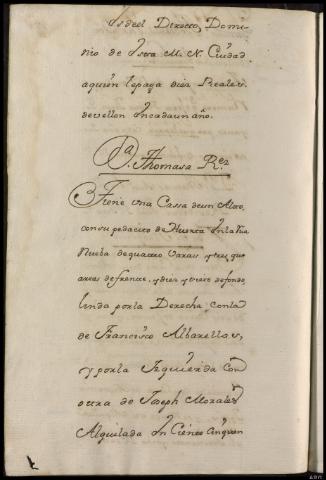 es de el Directo Domi-
nio de Ista M. N. Ciudad
a quien le paga diez Reales
de vellon En cada un año.
D.ª Thomasa R.ez
Tiene una Cassa de un Alto,
con su pedacito de Huerta En la Rua
Nueba de quatro Varas y tres qu
artas de frente, y diez y siete de fondo,
linda por la Derecha con la
de Francisco Albarellos,
y por la Izquierda Con
otra de Joseph Morales
Alquilada En Ciento Cinquen